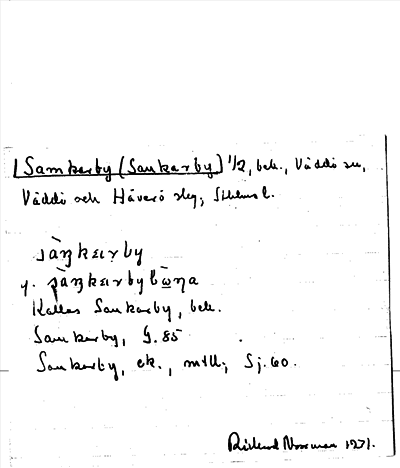 Samkarby (Sankarby) 1/2, beb., Väddö sn,
Väddö och Häverö slg, Sthlms l.
sàŋkɛɩrby
y.
Kallas Sankarby, beb.
Sankarby, G. 85
Sankarby, ek., mtl.; Sj. 60.
Rikard Norrman 1931.